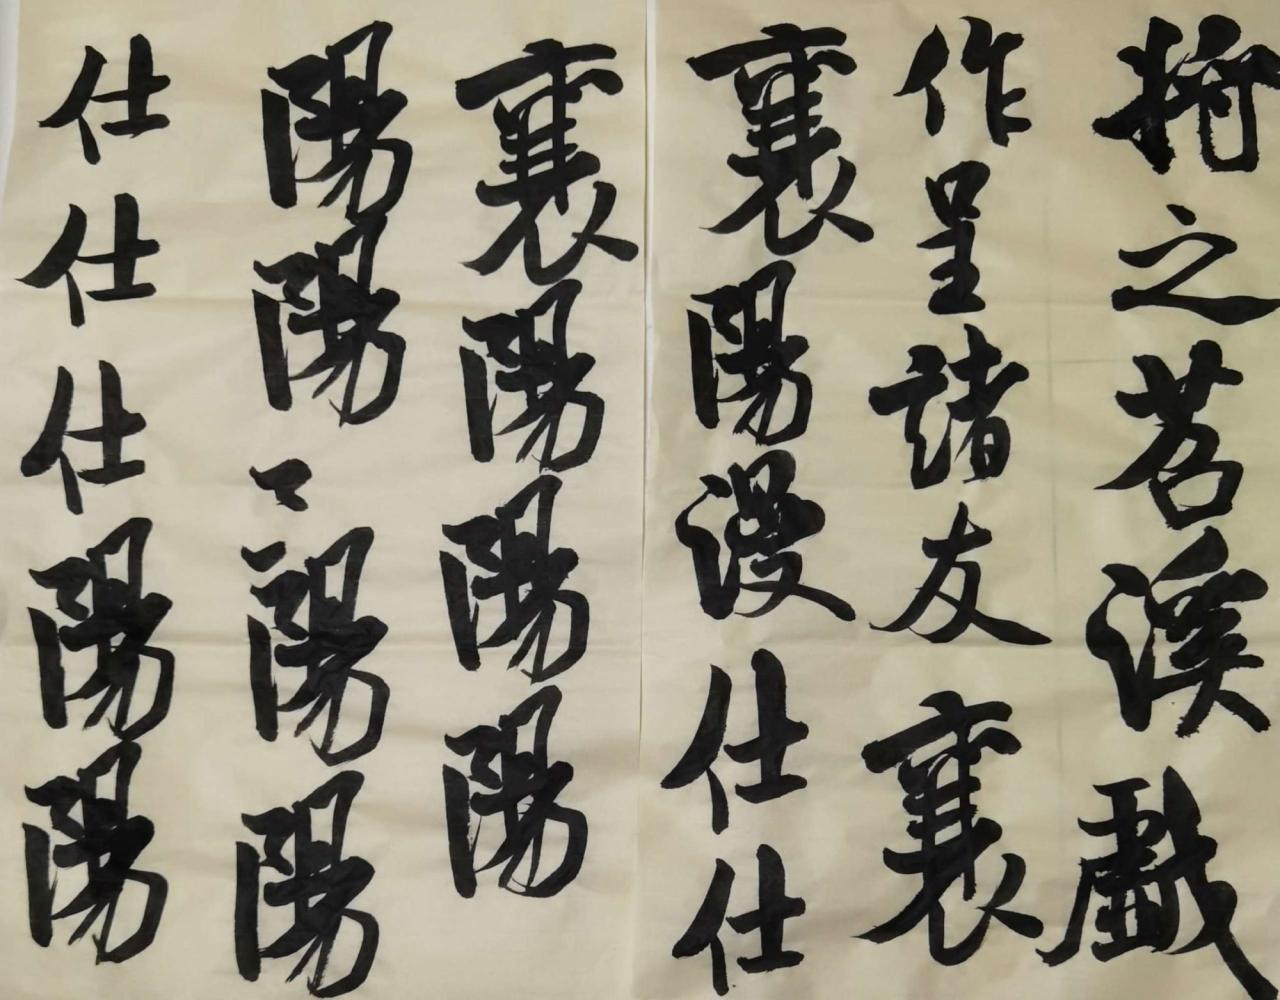 將之苕溪戲
作呈諸友襄
襄陽漫仕仕
襄陽陽陽
陽陽陽陽
仕仕仕陽陽